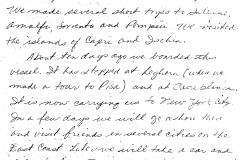 We made several short trips to Salerno,
Amalfi, Sorrento and Pompeii. We visited
the islands of Capri and Ischia.
About ten days ago we boarded this
vessel. It has stopped at Leghorn (where we
made a tour to Pisa) and at Casablanca.
It is now carrying us to New York City.
In a few days we will go ashore there
and visit friends in several cities on the
East Coast. Later we will take a car and